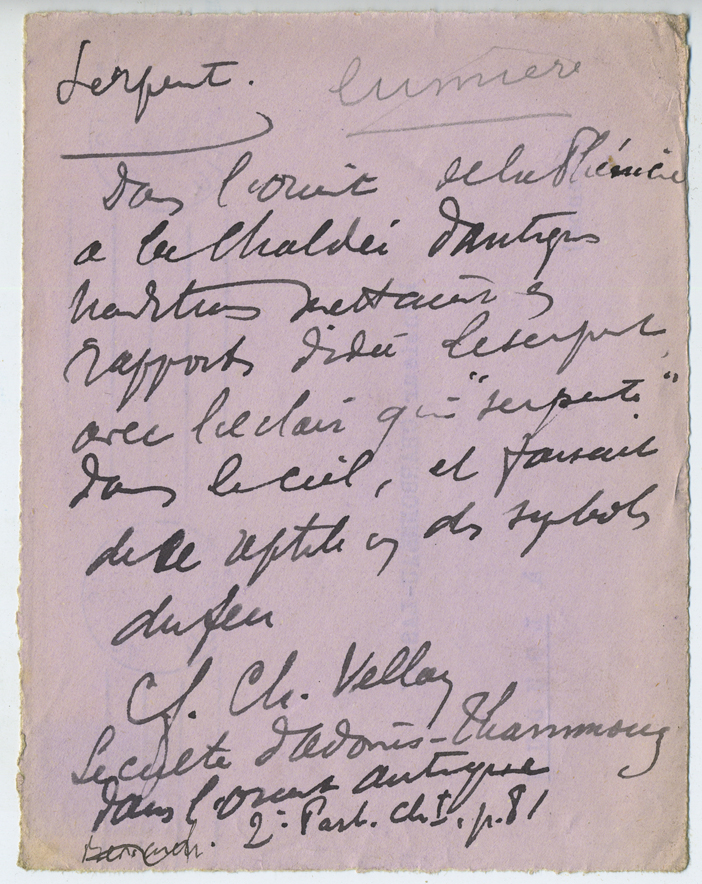 Serpent. lumière
Dans l'orient de la Phénicie
a la Chaldée d'antiques
traditions mettaient en
rapports d'idée le serpent
avec l'éclair qui "serpente"
dans le ciel, et faisait
de ce reptile un des symboles
du feu
Cf. Ch. Vellay
Le culte d'Adonis-Thammouz
dans l'orient antique
2e Part. Ch I, p. 81